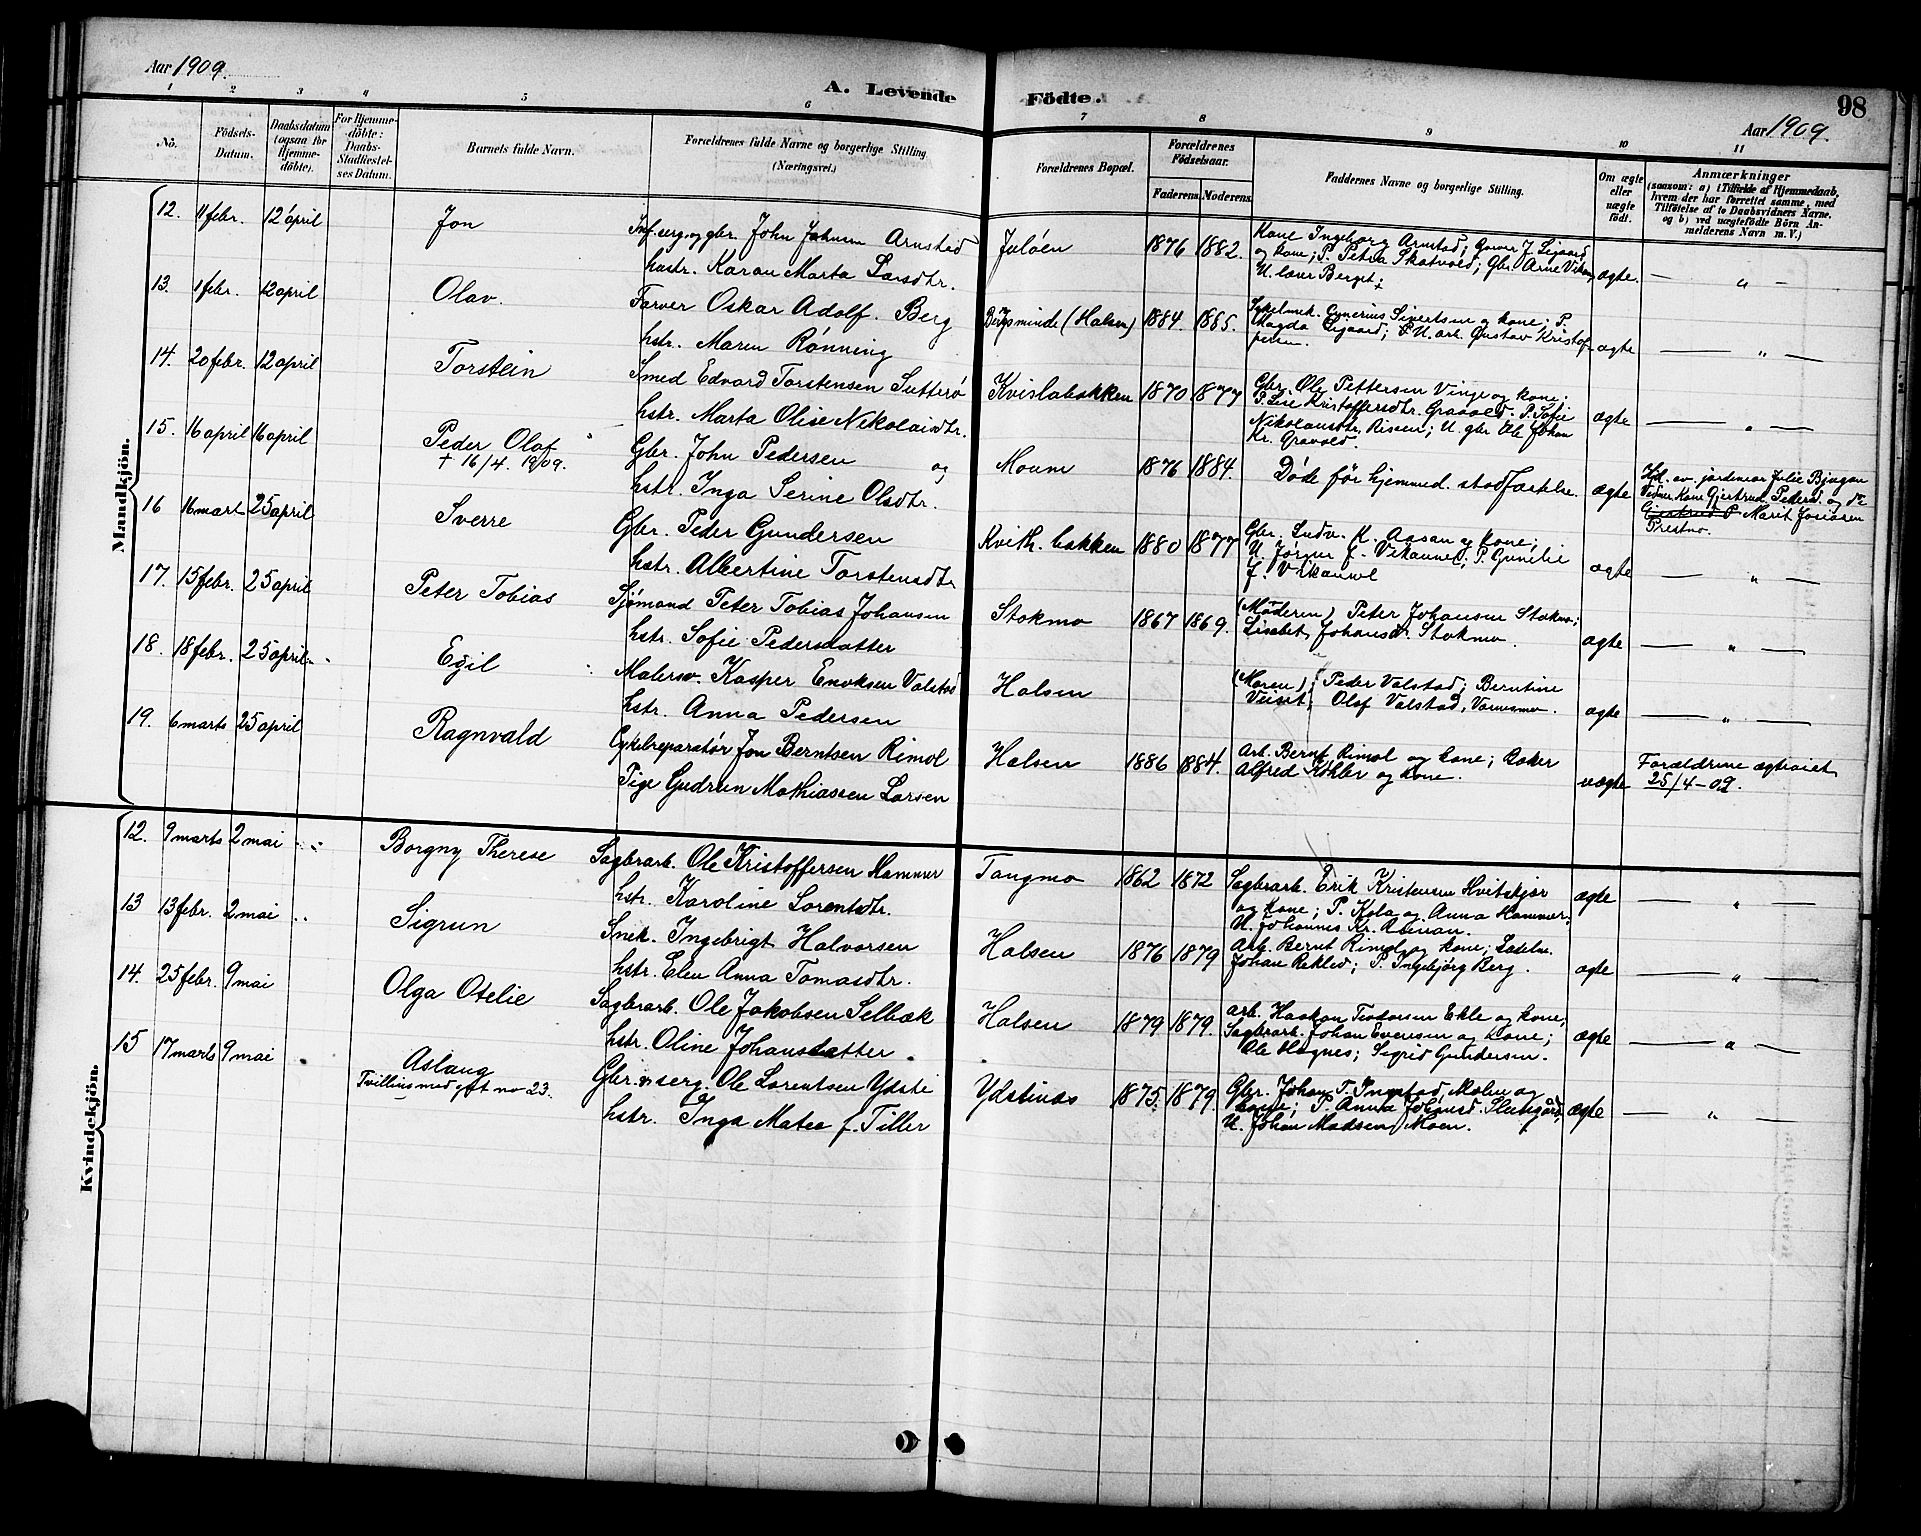 Aar 1909.
A. Levende
Födte.
98
Aar 1909.
1 2 3 4 5 6 7 8 9 10 11
No.
Födsels-Datum.
Daabsdatum (ogsaa for Hjemme-döbte).
For Hjemme-döbte: Daabs-Stadfæstel-ses Datum.
Barnets fulde Navn.
Forældrenes fulde Navne og borgerlige Stilling (Næringsvei.)
Forældrenes Bopæl.
Forældrenes Födselsaar.
Faderens. Moderens.
Faddernes Navne og borgerlige Stilling.
Om ægte eller uægte födt.
Anmærkninger
(saasom: a) i Tilfælde af Hjemmedaab, hvem der har forrettet samme, med Tilföielse af to Daabsvidners Navne, og b) ved uægtefödte Börn An-melderens Navn m. V.)
Mandkjön.
12. 11 febr. 12 april Jon
Inf.serg. og gbr. John Johnsen Arnstad
hustr. Karan Marta Larsdtr.
Juløen 1876 1882.
Kone Ingeborg Arnstad; Garver J. Ligaard
og kone; P. Petra Skatvold; Gbr. Arne Vikan
U. Berget;
ægte. — " —
13. 1 febr. 12 april Olav.
Farver Oskar Adolf. Berg
hstr. Maren Rønning
Bergsminde (Halsen) 1884. 1885.
Cykelmek. Sivertsen og kone; P.
Magda Ligaard; U. arb. Gustav Kristof-
fersen.
ægte — " —
14. 20 febr. 12 april Torstein
Smed Edvard Torstensen Sutterø
hstr. Marta Olise Nikolaisdtr.
Kvislabakken 1870 1877
Gbr. Ole Pettersen Vinge og kone;
P. Lise Kristoffersdtr. Gravold. P. Sofie
Nikolausdtr. Rissen; U. gbr Ole Johan
Kr. Gravold.
ægte — " —
15. 16 april 16 april Peder Olaf
† 16/4. 1909.
Gbr. John Pedersen og
hstr. Inga Serine Olsdtr.
Moum 1876 1884.
Døde før hjemmed. stadfæstelse.
ægte
Hjd. av jordemor Julie Bjugan
Vidner Kone Gjertrud Pedersd. og
Marit Josiasen
Prestmo.
16 16 mart 25 april Sverre
Gbr. Peder Gundersen
hstr. Albertine Torstensdtr
Kvith.bakken 1880 1877
Gbr. Ludv. K. Aasan og kone;
U. Jørgen J. Vikanvel; P. Gunelie
J. Vikanvel
ægte — " —
17. 15 febr. 25 april Peter Tobias
Sjømand Peter Tobias Johansen
hstr. Sofie Pedersdatter
Stokmo 1867 1869.
(Moderen) Peter Johansen Stokmo;
Lisabet Johansd. Stokmo.
ægte — " —
18. 18 febr. 25 april Egil
Malersv. Kasper Enoksen Valstad
hstr. Anna Pedersen
Halsen
(Maren) Peder Valstad; Berntine
Olaf Valstad, Værnesmo.
ægte — " —
19. 6 marts 25 april Ragnvald
Cykelreparatør Jon Berntsen Rimol
Pige Gudrun Mathiassen Larsen
Halsen 1886 1884.
Arb. Bernt Rimol og kone; Baker
Alfred Köhler og kone.
uægte
Forældrene ægteviet
25/4-09.
Kvindekjön.
12. 9 marts 2 mai Borgny Therese
Sagbrarb. Ole Kristoffersen Hammer
hstr. Karoline Lorentsdtr.
Tangmo 1862 1872
Sagbrarb. Erik Kristensen Hvitskjør
og kone; P. Kola og Anna Hammer;
U. Johannes Kr.
ægte — " —
13 13 febr. 2 mai Sigrun
Snek. Ingebrigt Halvorsen
hstr. Elen Anna Tomasdtr.
Halsen 1876 1879
Arb. Bernt Rimol og kone;
Johan Rekled; P. Ingebjørg Berg.
ægte — " —
14. 25 febr. 9 mai Olga Otelie
Sagbrarb. Ole Jakobsen Selbæk
hstr. Oline Johansdatter
Halsen 1879 1879.
Arb. Haakon Teodorsen Ekle og kone;
Sagbrarb. Johan Evensen og kone;
Ole Hognes; Sigrid Gundersen.
ægte — " —
15 17 marts 9 mai Aslaug
Tvilling med gutt no 23.
Gbr. og serg. Ole Lorentsen Ydsti
hstr. Inga Matea f. Tiller
Ydstines 1875. 1879.
Gbr. Johan T. Ingstad, Malen og
kone; P. Anna Johansd. Slungård,
U. Johan Madsen Moen.
ægte — " —